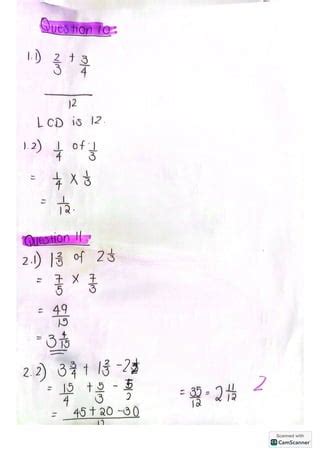 Question 10:
1.1) 2/3 + 3/4
12
LCD is 12.
1.2) 1/4 of 1/3
= 1/4 x 1/3
= 1/12.
Question 11
2.1) 1 2/5 of 2 1/3
= 7/5 x 7/3
= 49/15
= 3 4/15
2.2) 3 3/4 + 1 2/3 - 2 1/2
= 15/4 + 5/3 - 5/2
= 45+20-30/12
= 35/12 = 2 11/12
2
Scanned with
CS CamScanner